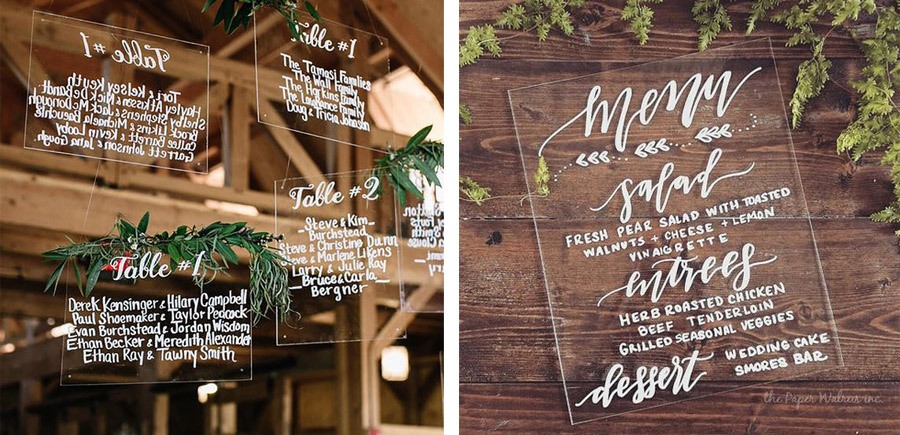 Table #1
Tori & Kelsey Keuth
& Nick
Stephens & Jack McDonagh
Brock Likins & Michaela
Barrett & Kevin Loby
Garrett Johnson & Gough
Table #1
The Tamasi Families
The Wall Family
The Harkins Family
The Family
Doug & Tricia Johnson
Table #2
Steve & Kim
Burchstead
Steve & Christine Dunn
Steve & Marlene Likens
Larry & Julie Ray
Bruce & Carla
Bergner
Table #1
Derek Kensinger & Hilary Campbell
Paul Shoemaker & Taylor Pedcock
Evan Burchstead & Jordan Wisdom
Ethan Becker & Meredith Alexander
Ethan Ray & Tawny Smith
menu
salad
FRESH PEAR SALAD WITH TOASTED
WALNUTS + CHEESE + LEMON
VINAIGRETTE
entrees
HERB ROASTED CHICKEN
BEEF TENDERLOIN
GRILLED SEASONAL VEGGIES
dessert
WEDDING CAKE
SMORES BAR
the Paper Walrus inc.